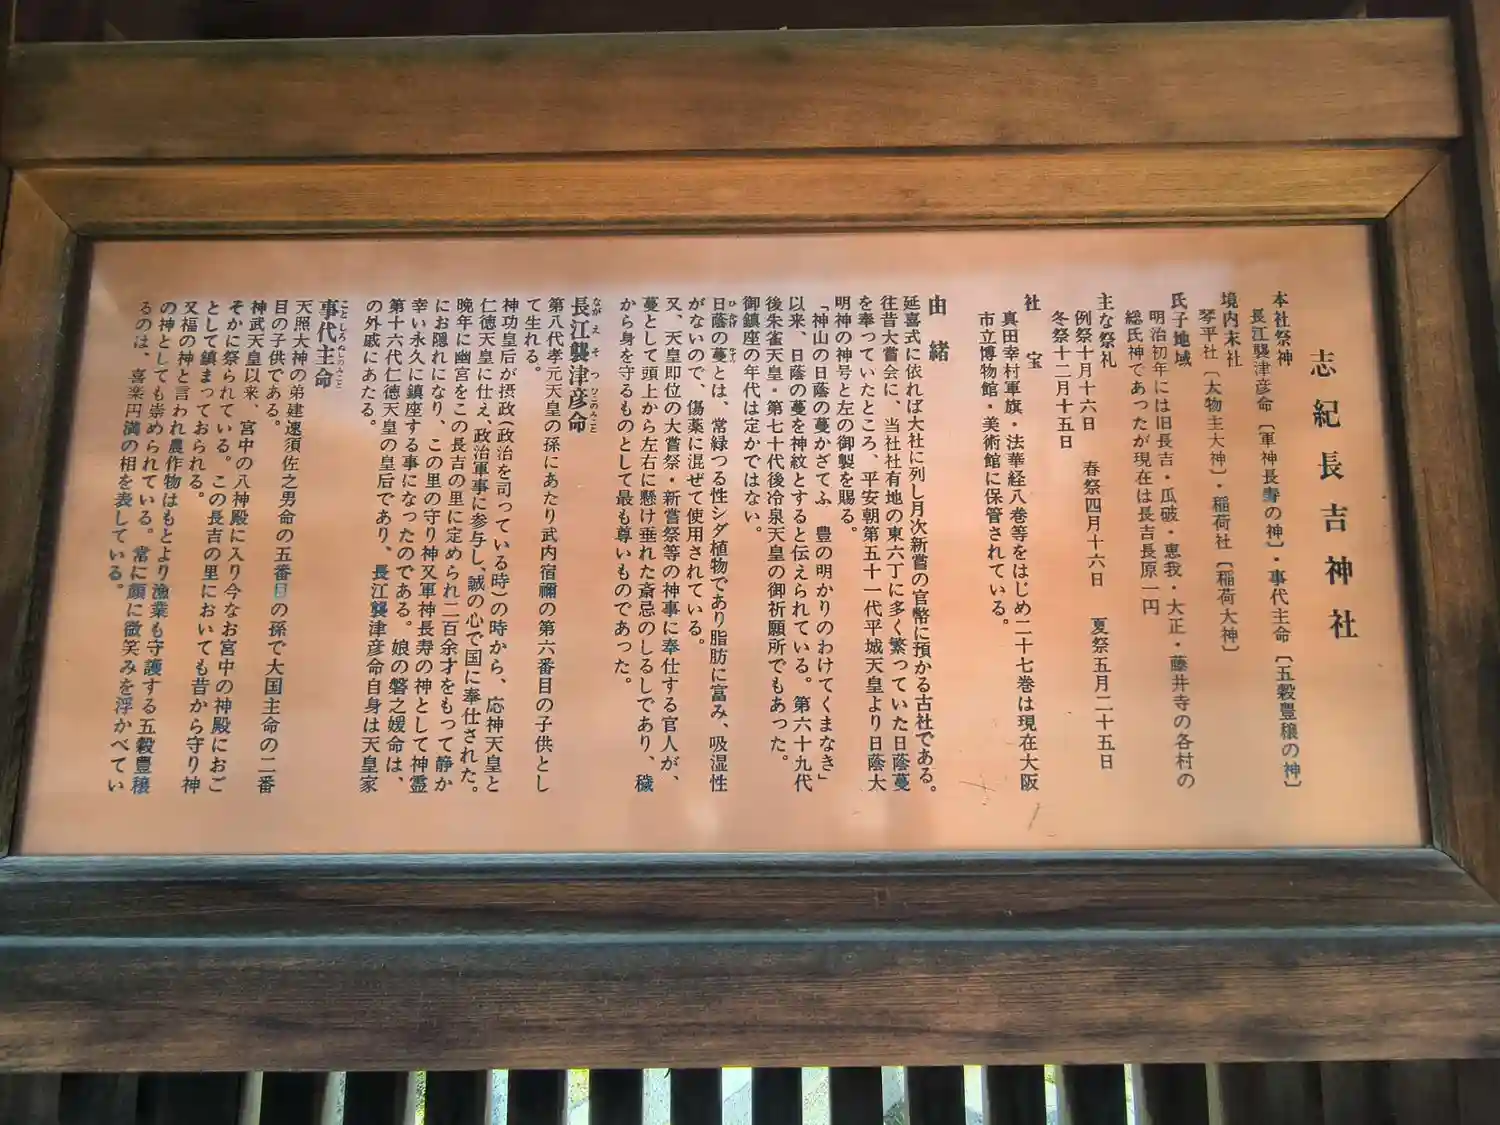 志紀長吉神社
本社祭神
長江襲津彦命〔軍神長壽の神〕・事代主命〔五穀豊穣の神〕
境内末社
琴平社〔大物主大神〕・稲荷社〔稲荷大神〕
氏子地域
明治初年には旧長吉・瓜破・恵我・大正・藤井寺の各村の
総氏神であったが現在は長吉長原一円
主な祭礼
例祭十月十六日 春祭四月十六日 夏祭五月二十五日
冬祭十二月十五日
社宝
真田幸村軍旗・法華経八巻等をはじめ二十七巻は現在大阪
市立博物館・美術館に保管されている。
由緒
延喜式に依れば大社に列し月次新嘗の官幣に預かる古社である。
往昔大嘗会に、当社社有地の東六丁に多く繁っていた日蔭蔓
を奉っていたところ、平安朝第五十一代平城天皇より日蔭大
明神の神号と左の御製を賜る。
「神山の日蔭の蔓かざてふ 豊の明かりのわけてくまなき」
以来、日蔭の蔓を神紋とすると伝えられている。第六十九代
後朱雀天皇・第七十代後冷泉天皇の御祈願所でもあった。
御鎮座の年代は定かではない。
日蔭の蔓とは、常緑つる性シダ植物であり脂肪に富み、吸湿性
がないので、傷薬に混ぜて使用されている。
又、天皇即位の大嘗祭・新嘗祭等の神事に奉仕する官人が、
蔓として頭上から左右に懸け垂れた斎忌のしるしであり、穢
から身を守るものとして最も尊いものであった。
長江襲津彦命
第八代孝元天皇の孫にあたり武内宿禰の第六番目の子供とし
て生れる。
神功皇后が摂政(政治を司っている時)の時から、応神天皇と
仁徳天皇に仕え、政治軍事に参与し、誠の心で国に奉仕された。
晩年に幽宮をこの長吉の里に定められ二百余才をもって静か
にお隠れになり、この里の守り神又軍神長寿の神として神霊
幸い永久に鎮座する事になったのである。娘の磐之媛命は、
第十六代仁徳天皇の皇后であり、長江襲津彦命自身は天皇家
の外戚にあたる。
事代主命
天照大神の弟建速須佐之男命の五番目の孫で大国主命の二番
目の子供である。
神武天皇以来、宮中の八神殿に入り今なお宮中の神殿におご
そかに祭られている。この長吉の里においても昔から守り神
として鎮まっておられる。
又福の神と言われ農作物はもとより漁業も守護する五穀豊穣
の神としても崇められている。常に顔に微笑みを浮かべてい
るのは、喜楽円満の相を表している。